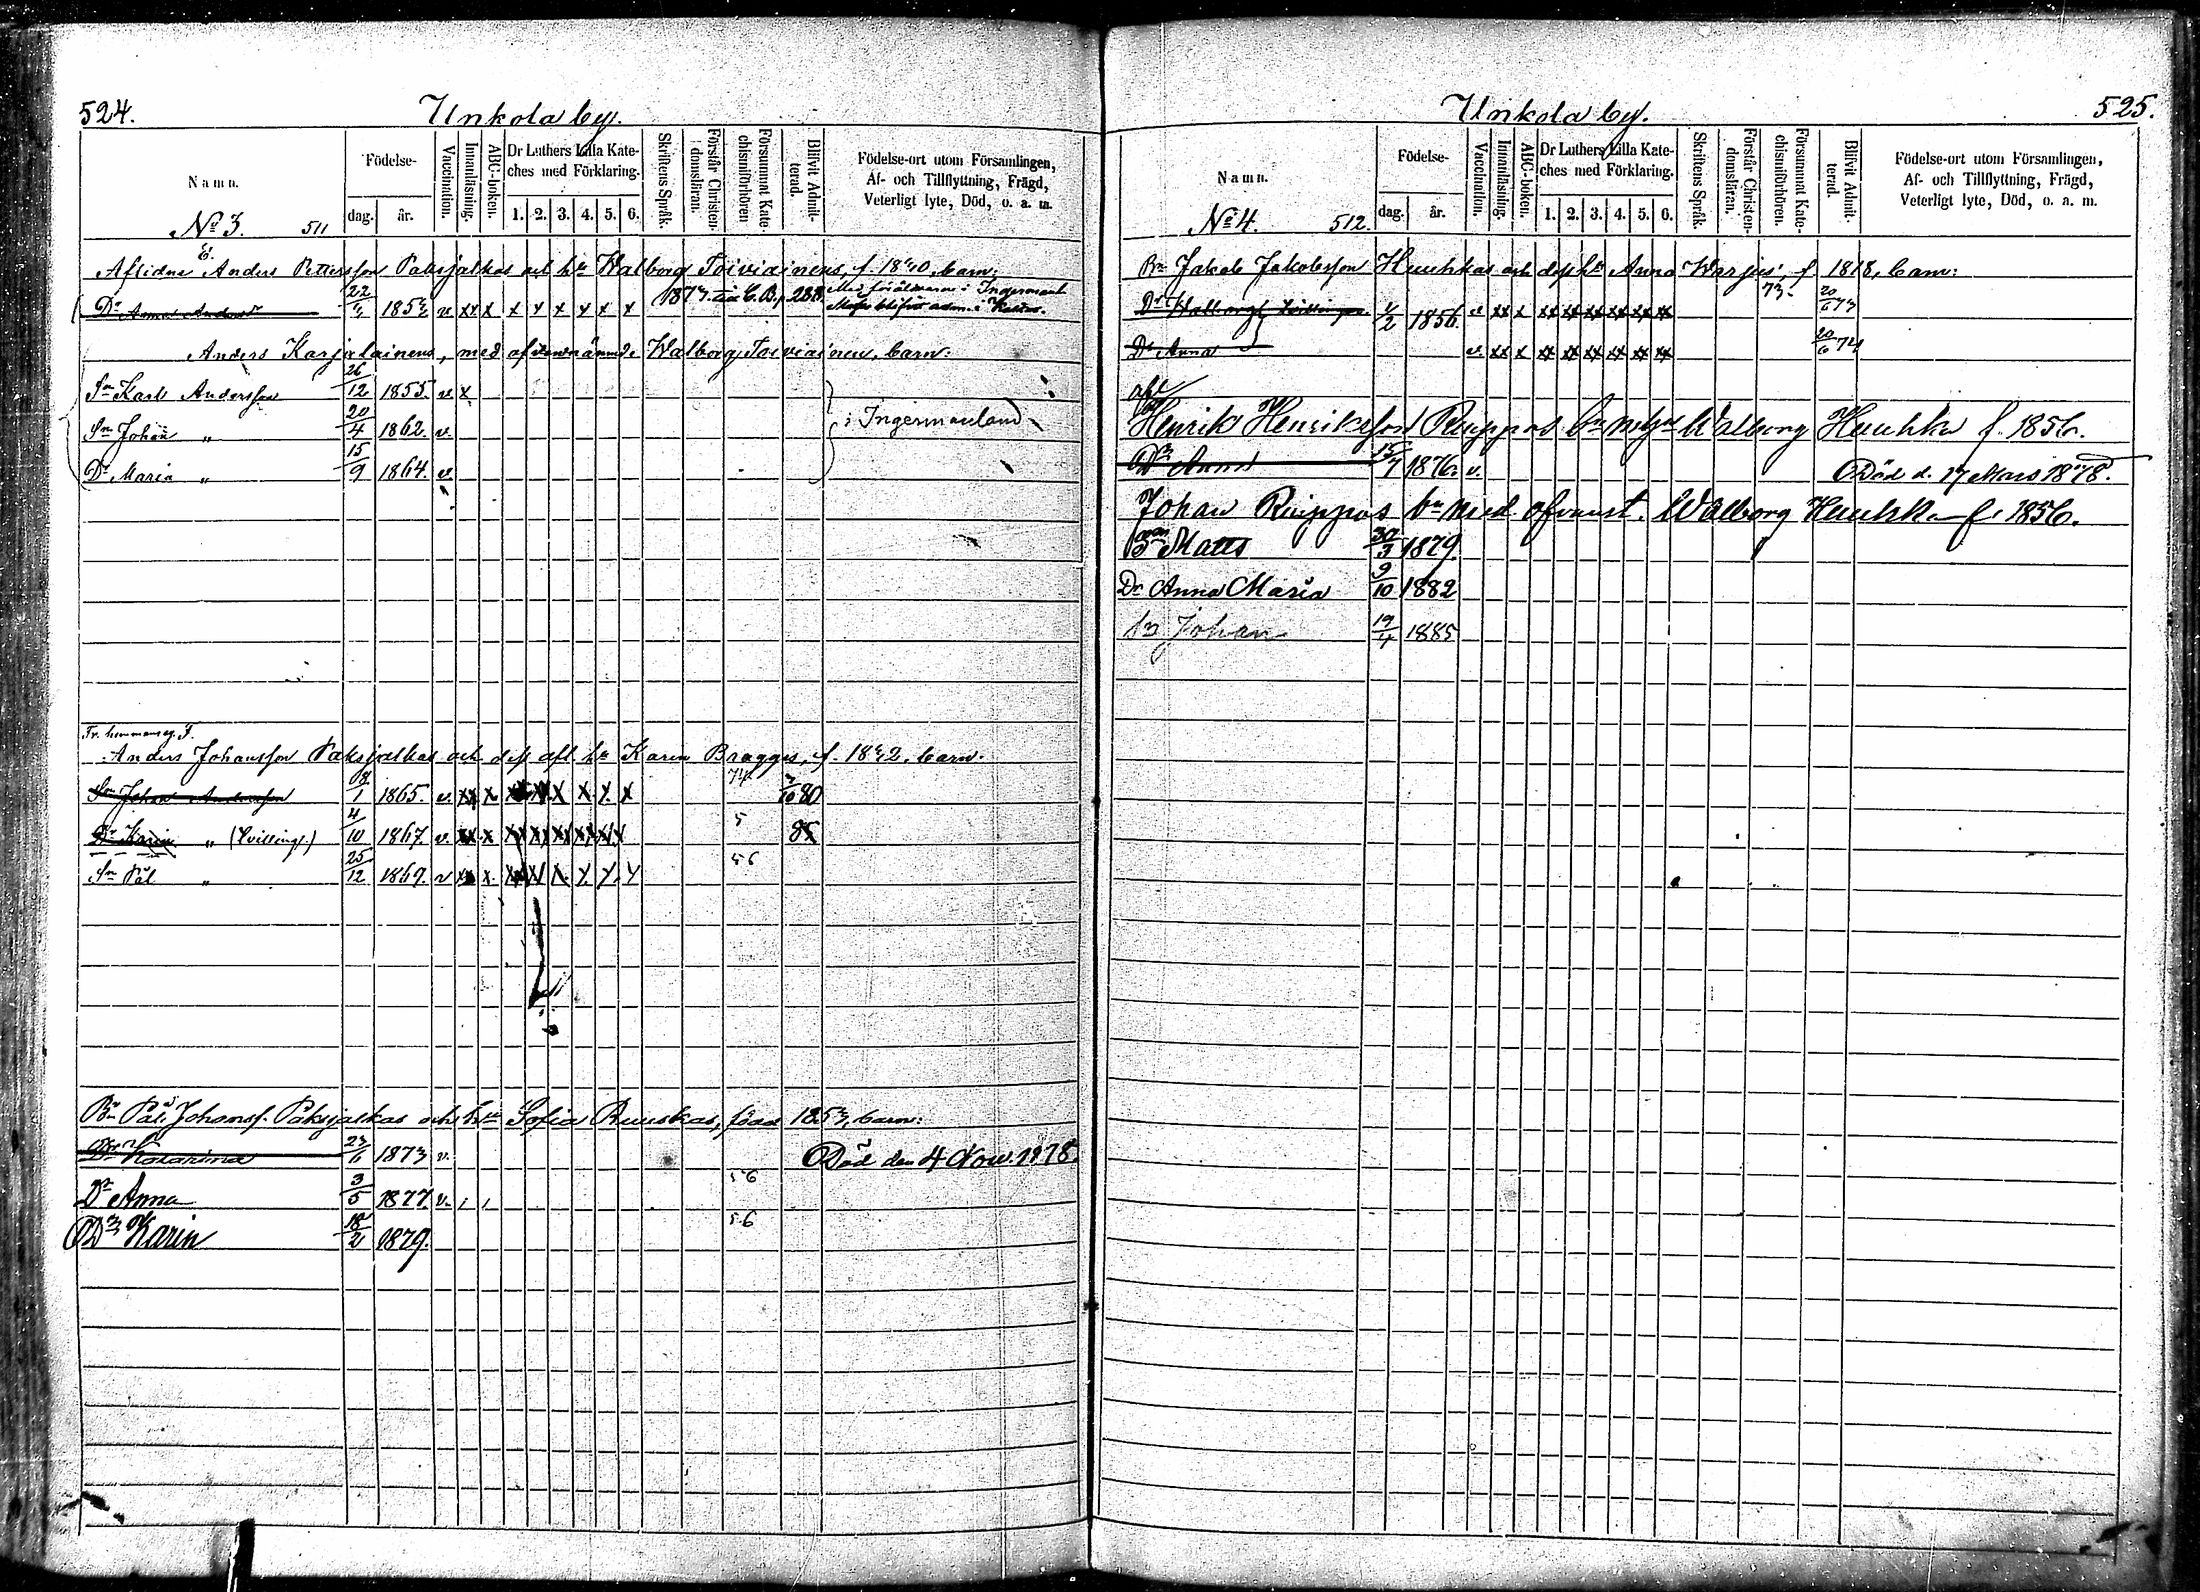 524.
Unkola by.
Namn.
Födelse-
dag.
år.
Vaccination.
Innanläsning.
ABC-boken.
Dr Luthers Lilla Kate-
ches med Förklaring.
1. 2. 3. 4. 5. 6.
Skriftens Språk.
Förstår Christen-
domsläran.
Försummat Kate-
chismiförhören
Blifvit Admit-
terad.
Födelse-ort utom Församlingen,
Af- och Tillflyttning, Frägd,
Veterligt lyte, Död, o. a. m.
No 3. 511
Aflidne Anders Pettersson Paksjalkas och hu Walborg Toiviainens, f. 1840, barn:
Dr Anna Andersdr 1853 v xx x x x x x x x
Med föräldrarne i Ingermanl.
Anders Karjalainens, med ofvannämnde Walborg Toiviainen, barn:
Sn Karl Andersson 26/12 1855. v. x
Sn Johan " 20/4 1862. v.
i Ingermanland
Dr Maria " 15/9 1864. v.
Fr. hemmanseg. J.
Anders Johansson Paksjalkas och dess afl. hu Karin Bragges, f. 1842, barn:
Sn Johan Andersson 8/1 1865. v. 74 80
Dr Karin " (Tvilling.) 4/10 1867. v. 5 85
Sn Pål " 25/12 1869. v 56
Bn Pål Johanss. Paksjalkas och hu Sofia Ruuskas, född 1853, barn:
Dr Katarina 23/6 1873 v. Död den 4 Nov. 1878.
Dr Anna 3/5 1877. v. 56
Dr Karin 18/2 1879. 56
525.
Unkola by.
Namn.
Födelse-
dag.
år.
Vaccination.
Innanläsning.
ABC-boken.
Dr Luthers Lilla Kate-
ches med Förklaring.
1. 2. 3. 4. 5. 6.
Skriftens Språk.
Förstår Christen-
domsläran.
Försummat Kate-
chismiförhören.
Blifvit Admit-
terad.
Födelse-ort utom Församlingen,
Af- och Tillflyttning, Frägd,
Veterligt lyte, Död, o. a. m.
No 4. 512.
Bn Jakob Jakobsson Huuhkas och dess hu Anna Warjus, f 1818, barn:
Dr Walborg Tvillingar. 1/2 1856. v 73. 20/6 73
Dr Anna v. 20/6 74
afl
Henrik Henriksson Ruippos bn m hu Walborg Huuhka f. 1856.
Dr Anna 15/7 1876. v. Död d. 17 Mars 1878.
Johan Ruippos bn med ofvanst. Walborg Huuhka f. 1856.
Sn Matts 30/3 1879.
Dr Anna Maria 9/10 1882
Sn Johan 19/4 1885